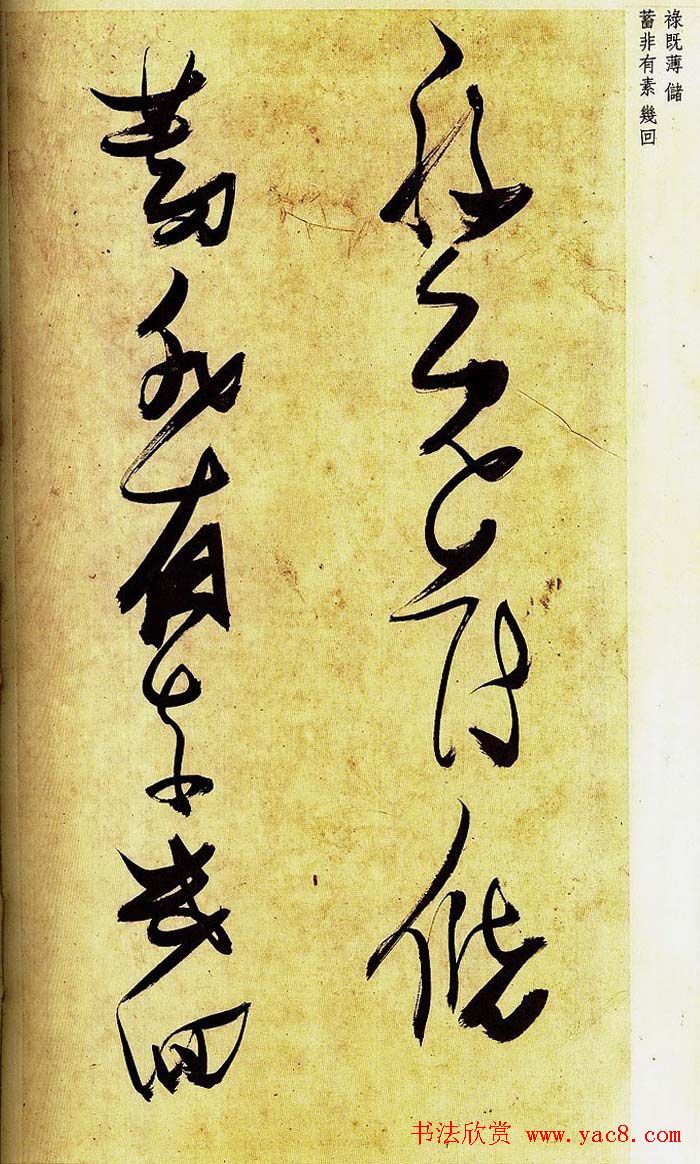 祿既薄 儲
蓄非有素 幾回
祿既薄儲
蓄非有素幾回
书法欣赏 www.yac8.com